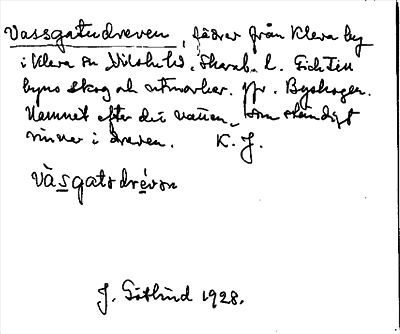 Vassgatudreven, fädrev från Kleva by
i Kleva sn Vilske hd, Skarab. l. till
byns skog och utmarker. Jfr. Byskogen.
Namnet efter det vatten, som ständigt
rinner i dreven. K. J.
vàsgatudrévən
J. Götlind 1928.